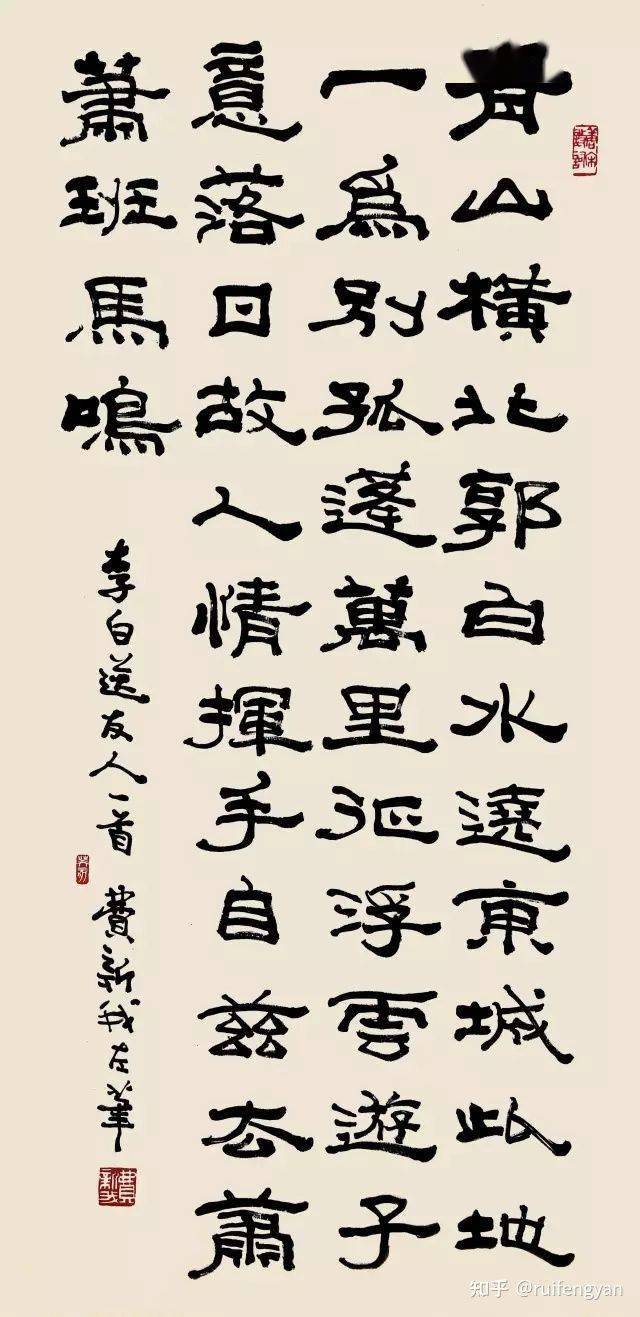 山橫北郭白水遶東城此地
一爲別孤蓬萬里征浮雲遊子
意落日故人情揮手自茲去蕭
蕭班馬鳴
李白送友人一首 費新我左筆
費新我
知乎 @ruifengyan